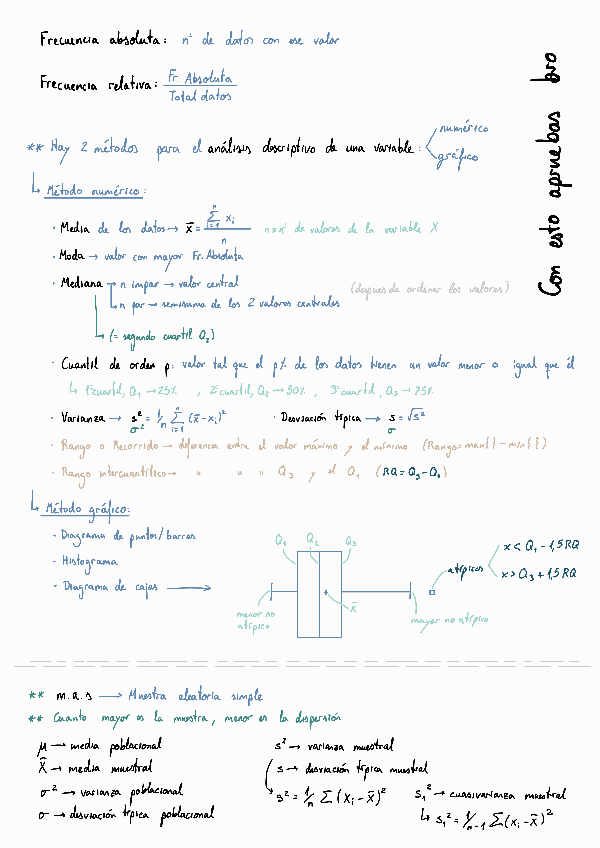 Frecuencia absoluta: nº de datos con ese valor
Frecuencia relativa: Fr. Absoluta / Total datos
Con esto apruebas bro
** Hay 2 métodos para el análisis descriptivo de una variable: numérico
gráfico
↳ Método numérico:
· Media de los datos → x̄ = Σ_{i=1}^{n} x_i / n n = nº de valores de la variable X
· Moda → valor con mayor Fr. Absoluta
· Mediana → n impar → valor central (despues de ordenar los valores)
↳ n par → semisuma de los 2 valores centrales
↳ (= segundo cuartil Q₂)
· Cuantil de orden p: valor tal que el p% de los datos tienen un valor menor o igual que él
↳ 1º cuartil, Q₁ → 25% , 2º cuartil, Q₂ → 50% , 3º cuartil, Q₃ → 75%
· Varianza → s² = 1/n Σ_{i=1}^{n} (x̄ - x_i)² · Desviación típica → s = √s²
σ² σ
· Rango o Recorrido → diferencia entre el valor máximo y el mínimo (Rango = max{ } - min{ })
· Rango intercuantílico → " " " Q₃ y el Q₁ (RQ = Q₃ - Q₁)
↳ Método gráfico:
- Diagrama de puntos/barras
- Histograma
- Diagrama de cajas →
Q₁ Q₂ Q₃
x̄
menor no atípico
mayor no atípico
atípicos
x < Q₁ - 1,5 RQ
x > Q₃ + 1,5 RQ
** m.a.s → Muestra aleatoria simple
** Cuanto mayor es la muestra, menor es la dispersión
μ → media poblacional
X̄ → media muestral
σ² → varianza poblacional
σ → desviación típica poblacional
s² → varianza muestral
s → desviación típica muestral
s² = 1/n Σ(x_i - x̄)²
s₁² → cuasivarianza muestral
↳ s₁² = 1/n-1 Σ(x_i - x̄)²